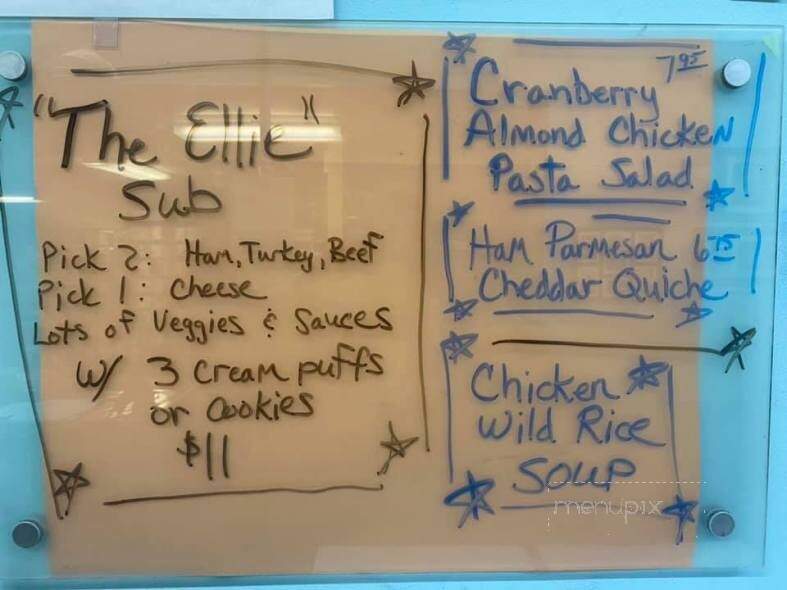 "The Ellie"
Sub
Pick 2: Ham, Turkey, Beef
Pick 1: Cheese
Lots of Veggies & Sauces
w/ 3 cream puffs
or Cookies
$11
7.95
Cranberry
Almond Chicken
Pasta Salad
Ham Parmesan 6.75
Cheddar Quiche
Chicken
Wild Rice
SOUP
menupix